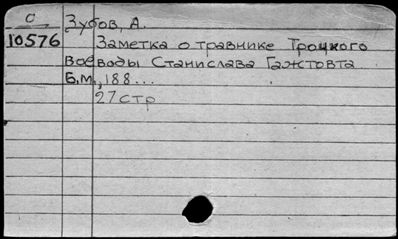 С
Зубов, А.
10576
Заметка о травнике Троцкого
воеводы Станислава Гажтовта
Б.м., 188...
27стр